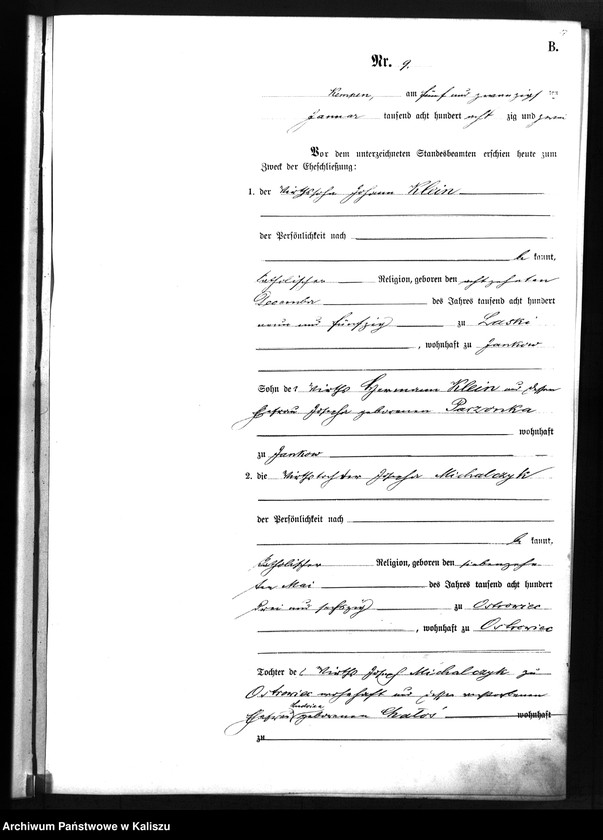 B.
Nr. 9.
Kempen, am fünf und zwanzigsten
Januar tausend acht hundert acht zig und zwei
Vor dem unterzeichneten Standesbeamten erschien heute zum
Zweck der Eheschließung:
1. der Wirthssohn Johann Klein
der Persönlichkeit nach
be kannt,
katholischer Religion, geboren den achtzehnten
December des Jahres tausend acht hundert
neun und fünfzig zu Laski
, wohnhaft zu Jankow
Sohn des Wirths Hermann Klein und dessen
Ehefrau Josepha geborenen Parzonka
wohnhaft
zu Jankow
2. die Wirthstochter Josepha Michalczyk
der Persönlichkeit nach
be kannt,
katholischer Religion, geboren den siebenzehn
ten Mai des Jahres tausend acht hundert
drei und sechszig zu Ostrowiec
, wohnhaft zu Ostrowiec
Tochter des Wirths Joseph Michalczyk zu
Ostrowiec wohnhaft und dessen verstorbenen
Ehefrau geborenen wohnhaft
zu
Archiwum Państwowe w Kaliszu